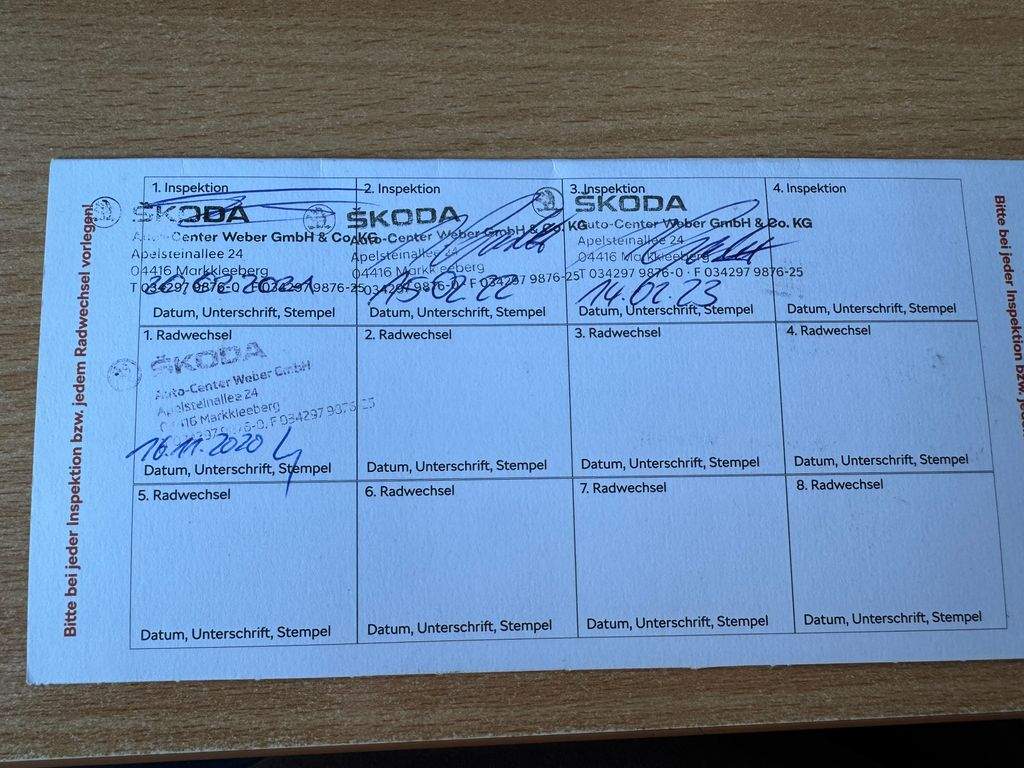 Bitte bei jeder Inspektion bzw. jedem Radwechsel vorlegen!
1. Inspektion
ŠKODA
Auto-Center Weber GmbH & Co. KG
Apelsteinallee 24
04416 Markkleeberg
T 034297 9876-0 · F 034297 9876-25
Datum, Unterschrift, Stempel
2. Inspektion
ŠKODA
Auto-Center Weber GmbH & Co. KG
Apelsteinallee 24
04416 Markkleeberg
034297 9876-0 · F 034297 9876-25
15.02.22
Datum, Unterschrift, Stempel
3. Inspektion
ŠKODA
Auto-Center Weber GmbH & Co. KG
Apelsteinallee 24
04416 Markkleeberg
T 034297 9876-0 · F 034297 9876-25
14.02.23
Datum, Unterschrift, Stempel
4. Inspektion
Datum, Unterschrift, Stempel
1. Radwechsel
ŠKODA
Auto-Center Weber GmbH
Apelsteinallee 24
04416 Markkleeberg
034297 9876-0, F 034297 9876-25
16.11.2020
Datum, Unterschrift, Stempel
2. Radwechsel
Datum, Unterschrift, Stempel
3. Radwechsel
Datum, Unterschrift, Stempel
4. Radwechsel
Datum, Unterschrift, Stempel
5. Radwechsel
Datum, Unterschrift, Stempel
6. Radwechsel
Datum, Unterschrift, Stempel
7. Radwechsel
Datum, Unterschrift, Stempel
8. Radwechsel
Datum, Unterschrift, Stempel
Bitte bei jeder Inspektion bzw.